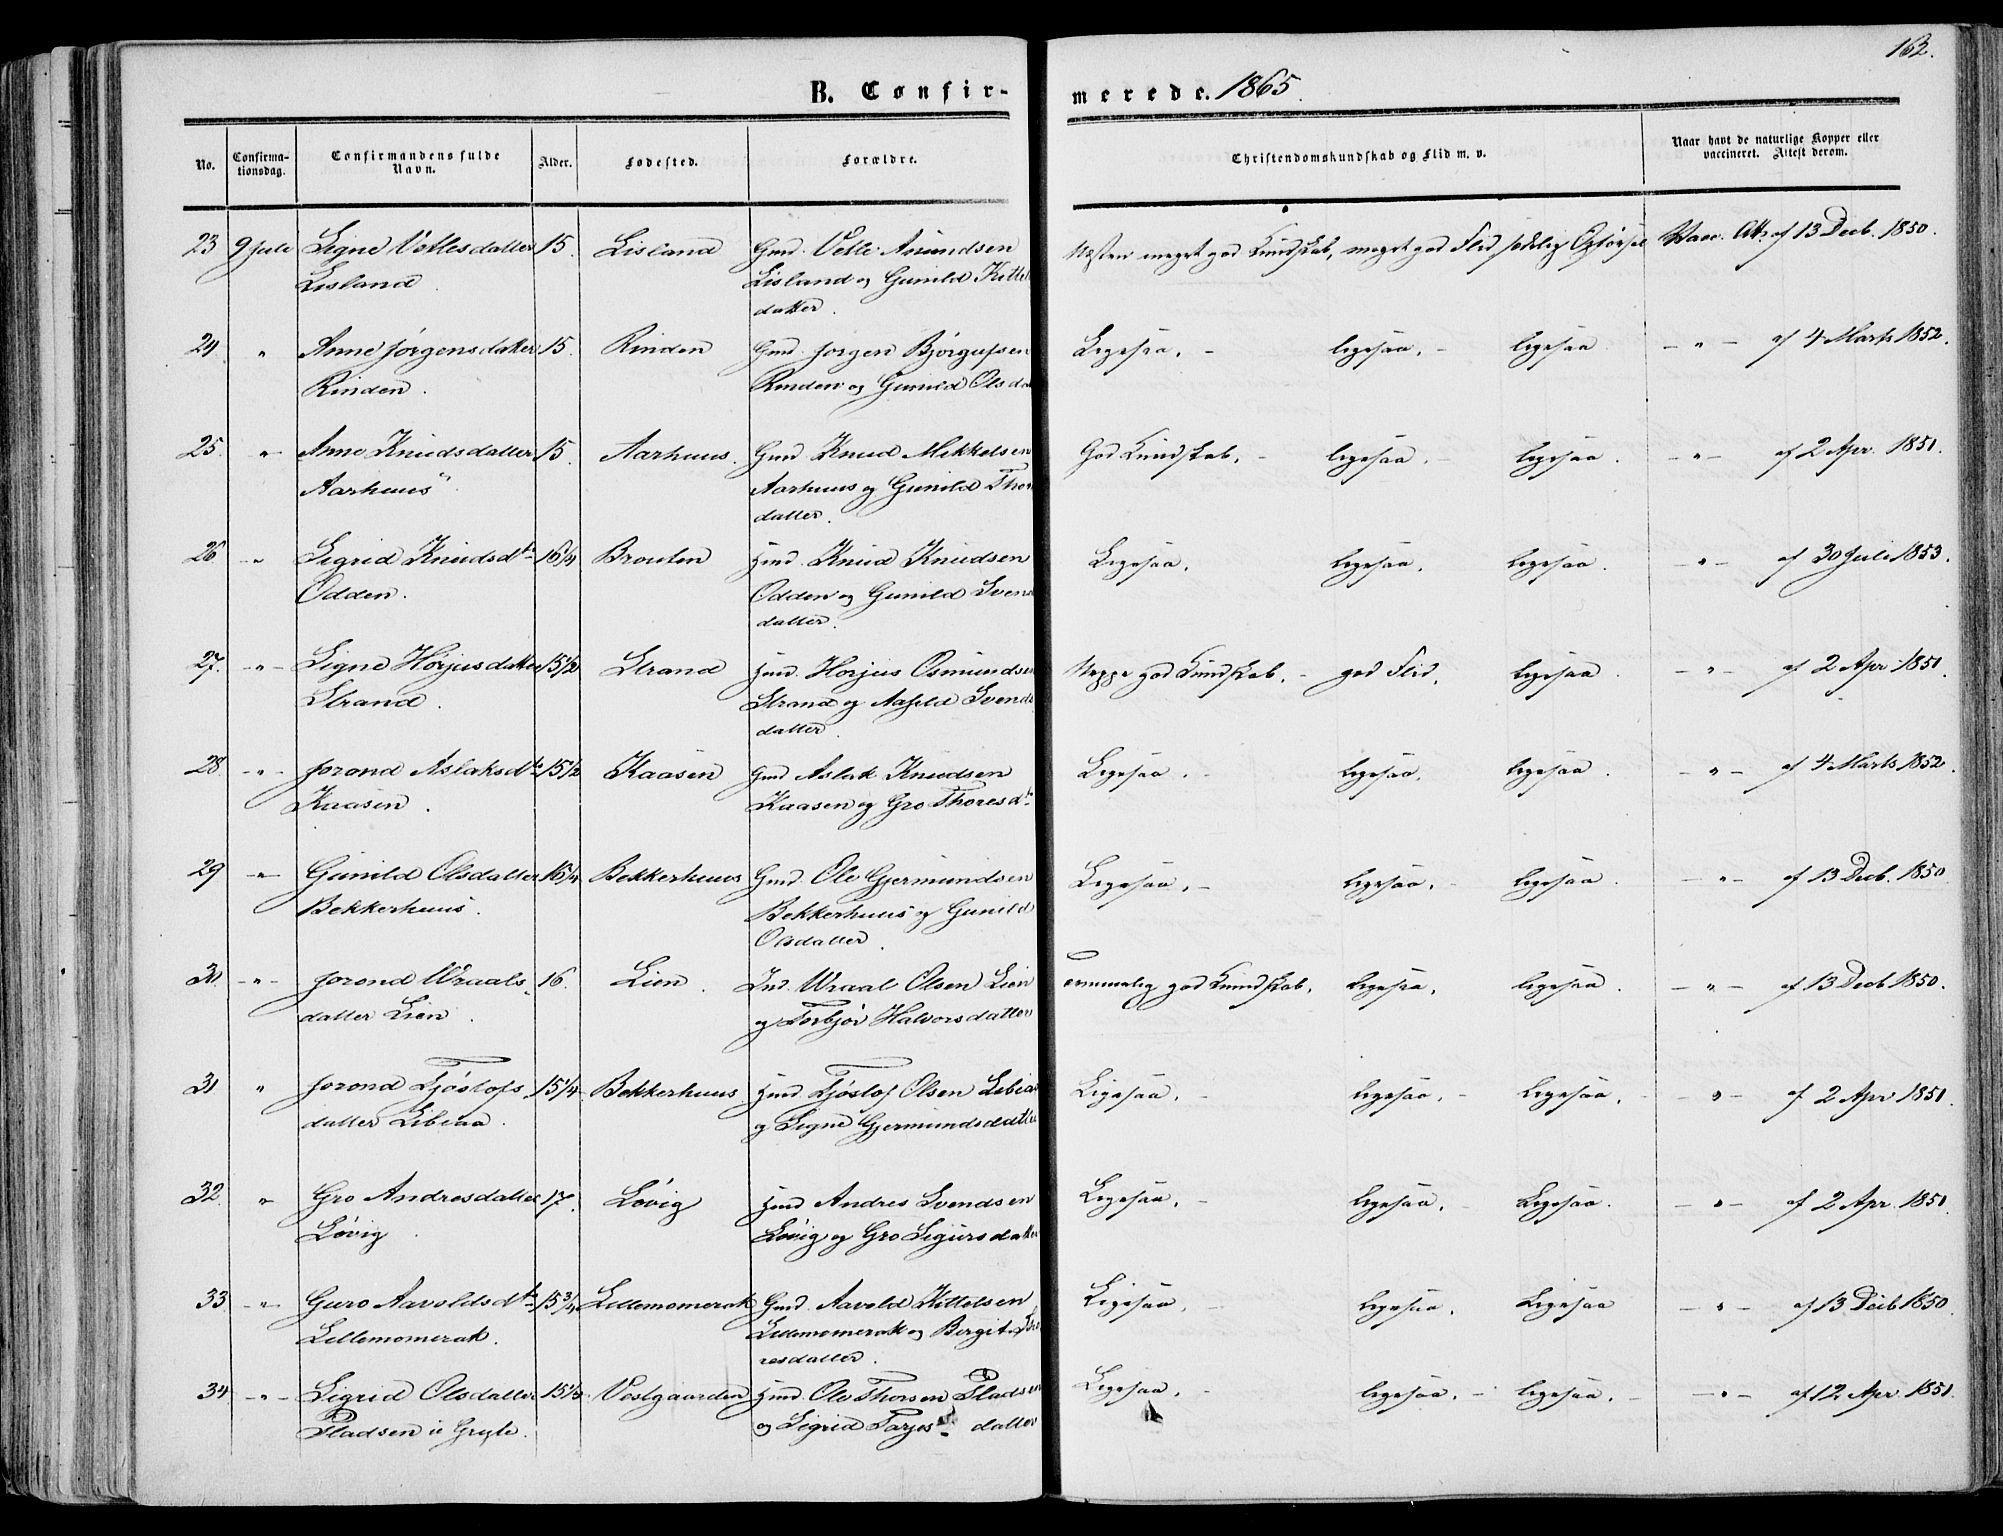 163.
B. Confirmerede. 1865.
No. Confirmationsdag. Confirmandens fulde Navn. Alder. Fødested. Forældre. Christendomskundskab og Flid m. v. Naar havt de naturlige Kopper eller vaccineret. Attest derom.
23 9 Juli Signe Vetlesdatter 15. Lisland Gmd. Vetle Amundsen Næsten meget god Kundskab, meget god Flid, sædelig Opførsel Vacc. Att. af 13 Decb. 1850.
Lisland. Lisland og Gunild Kittels
datter.
24 " Anne Jørgensdatter 15. Rinden Gmd. Jørgen Bjørgufsen Ligesaa, - ligesaa, - ligesaa - " - af 4 Marts 1852.
Rinden. Rinden og Gunild Olsda
25. " Anne Knudsdatter 15. Aarhuus. Gmd Knud Mikkelsen God Kundskab, - ligesaa, - ligesaa. - " - af 2 Apr. 1851.
Aarhuus. Aarhuus og Gunild Thor
datter.
26 - " Sigrid Knudsdtr 16 1/4 Brouten Hmd. Knud Knudsen Ligesaa, ligesaa, ligesaa. - " - af 30 Juli 1853.
Odden. Odden og Gunild Svens
datter.
27. - " - Signe Hørjusdatter 15 1/2 Strand Hmd. Horjus Osmundsen Neppe god Kundskab, - god Flid, ligesaa. - " - af 2 Apr. 1851.
Strand. Strand og Aasild Svends
datter.
28 - " - Jorond Aslaksdtr 15 1/2 Kaasen Gmd Aslak Knudsen Ligesaa. - ligesaa, ligesaa. - " - af 4 Marts 1852.
Kaasen. Kaasen og Gro Thoresdtr
29 - " - Gunild Olsdatter 16 1/4 Bekkerhuus Gmd. Ole Gjermundsen Ligesaa, - ligesaa, - ligesaa. - " - af 13 Decb. 1850
Bekkerhuus. Bekkerhuus og Gunild
Olsdatter.
30 - " - Jorond Wraals 16. Lien. Ind. Wraal Olsen Lien Temmelig god Kundskab, ligesaa, ligesaa. - " - af 13 Decb 1850.
datter Lien. og Torbjør Halvorsdatter
31 " Jorond Tjøstofs 15 1/4 Bekkerhuus. Hmd. Tjøstof Olsen Libiaa Ligesaa, - ligesaa, - Ligesaa, - - " - af 2 Apr 1851.
datter Libiaa. og Signe Gjermundsdatter
32. " Gro Andresdatter 17. Løvig Hmd Andres Svendsen Ligesaa, - ligesaa, - Ligesaa. - " - af 2 Apr. 1851.
Løvig. Løvig og Gro Sigursdatter
33 - " - Guro Aavoldsdtr 15 3/4 Lillemomerak Gmd. Aavold Kittelsen Ligesaa, - ligesaa, Ligesaa - " - af 13 Decb 1850.
Lillemomerak. Lillemomerak og Bergit
resdatter.
34 - " - Sigrid Olsdatter Vestgaarden Hmd. Ole Thorsen Pladsen Ligesaa, - ligesaa, - ligesaa, - - " - af 12 Apr. 1851.
Pladsen u Gryte. og Sigrid Tarjes- datter